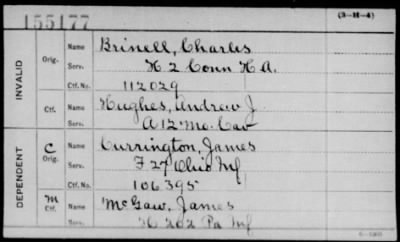 155177
(3-H-4)
INVALID
Orig. Name Brinell, Charles
Serv. H 2 Conn H A.
Ctf. No. 112029
Ctf. Name Hughes, Andrew J.
Serv. A 12 Mo. Cav
DEPENDENT
C Orig. Name Currington, James
Serv. F 27 Ohio Inf
Ctf. No. 106395
M Ctf. Name McGaw, James
Serv. H 202 Pa Inf